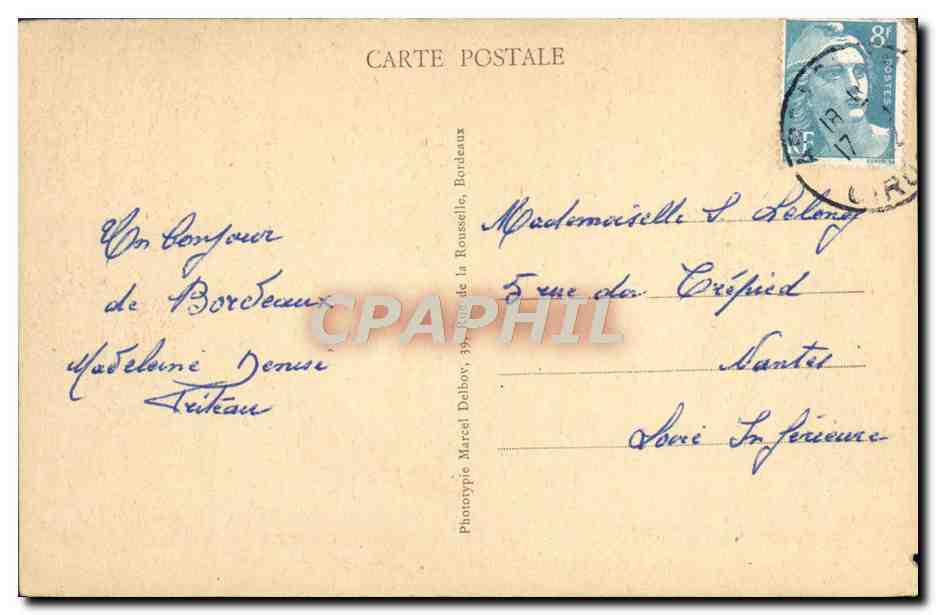 CARTE POSTALE
8F
POSTES
RF
18
17
Un bonjour
de Bordeaux
Madelaine Denise
Triteau
Photototypie Marcel Delboy, 39, Rue de la Rousselle, Bordeaux
Mademoiselle S. Lelong
5 rue du Trépied
Nantes
Loire Inférieure
CPAPHIL